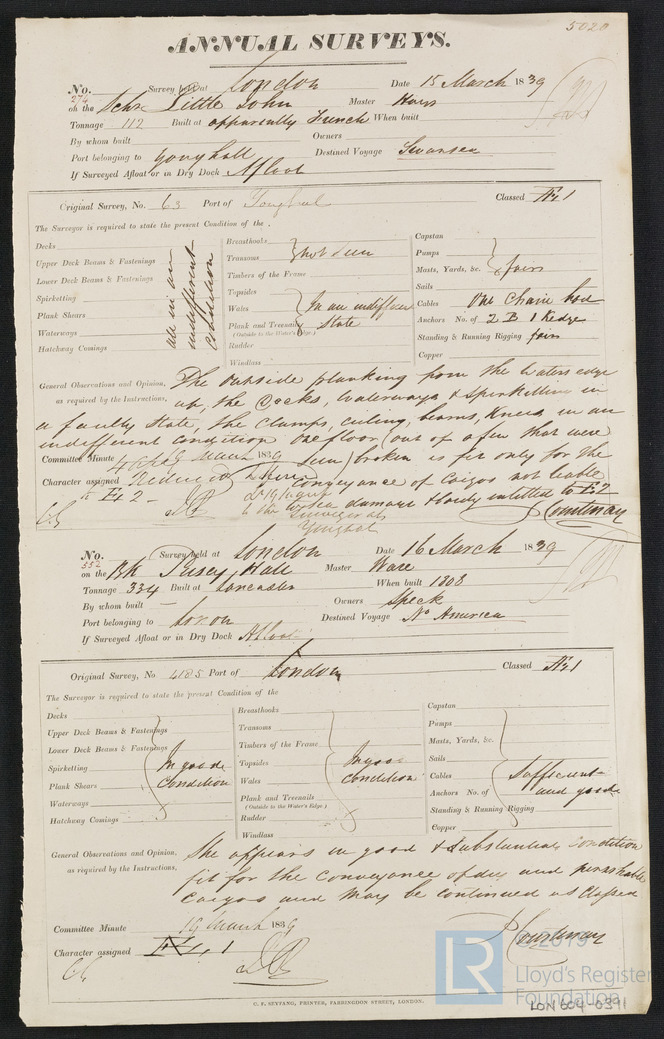 5020
ANNUAL SURVEYS.
No. 274 Survey held at London Date 15 March 1839
on the Schr Little John Master Hays
Tonnage 112 Built at apparently French When built
By whom built Owners
Port belonging to Youghall Destined Voyage Swansea
If Surveyed Afloat or in Dry Dock Afloat
Original Survey, No. 63 Port of Youghal Classed Æ 1
The Surveyor is required to state the present Condition of the
Decks
Upper Deck Beams & Fastenings
Lower Deck Beams & Fastenings
Spirketting
Plank Shears
Waterways
Hatchway Comings
all in an indifferent condition
Breasthooks
Transoms
Timbers of the Frame
not seen
Topsides
Wales
Plank and Treenails
(Outside to the Water's Edge.)
In an indifferent state
Rudder
Windlass
Capstan
Pumps
Masts, Yards, &c.
fair
Sails
Cables One Chain
Anchors No. of 2 B 1 Kedge
Standing & Running Rigging fair
Copper
General Observations and Opinion, The outside planking from the waters edge
as required by the Instructions. up, the Decks, Waterways & Spirkitting in
a faulty state, the clamps, ceiling, beams, knees in an
indifferent condition one floor (out of a few that were
Committee Minute 19 March 1839 seen) broken is fit only for the
Character assigned conveyance of Cargos not liable
to Æ 2 to sea damage & entitled to Æ 2
Surveyor at
Youghal
Courtenay
No. 552 Survey held at London Date 16 March 1839
on the Bk Pusey Hall Master Ware
Tonnage 334 Built at Lancaster When built 1808
By whom built — Owners Speck
Port belonging to London Destined Voyage No America
If Surveyed Afloat or in Dry Dock Afloat
Original Survey, No 4185 Port of London Classed Æ 1
The Surveyor is required to state the present Condition of the
Decks
Upper Deck Beams & Fastenings
Lower Deck Beams & Fastenings
Spirketting
Plank Shears
Waterways
Hatchway Comings
In good condition
Breasthooks
Transoms
Timbers of the Frame
Topsides
Wales
Plank and Treenails
(Outside to the Water's Edge.)
Rudder
Windlass
In good condition
Capstan
Pumps
Masts, Yards, &c.
Sails
Cables
Anchors No. of
Standing & Running Rigging
Copper
Sufficient and good
General Observations and Opinion, She appears in good & substantial condition
as required by the Instructions. fit for the conveyance of dry and perishable
Cargos and may be continued as classed
Committee Minute 19 March 1839
Character assigned Æ 1
Courtenay
C. F. SEYFANG, PRINTER, FARRINGDON STREET, LONDON.
LR
© 2019
Lloyd's Register
Foundation
LON 604-0391